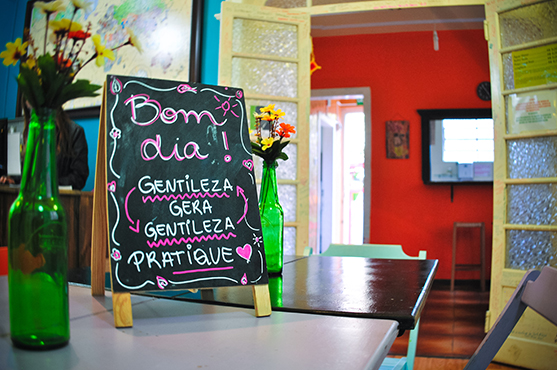 Bom
dia!
GENTILEZA
GERA
GENTILEZA
PRATIQUE